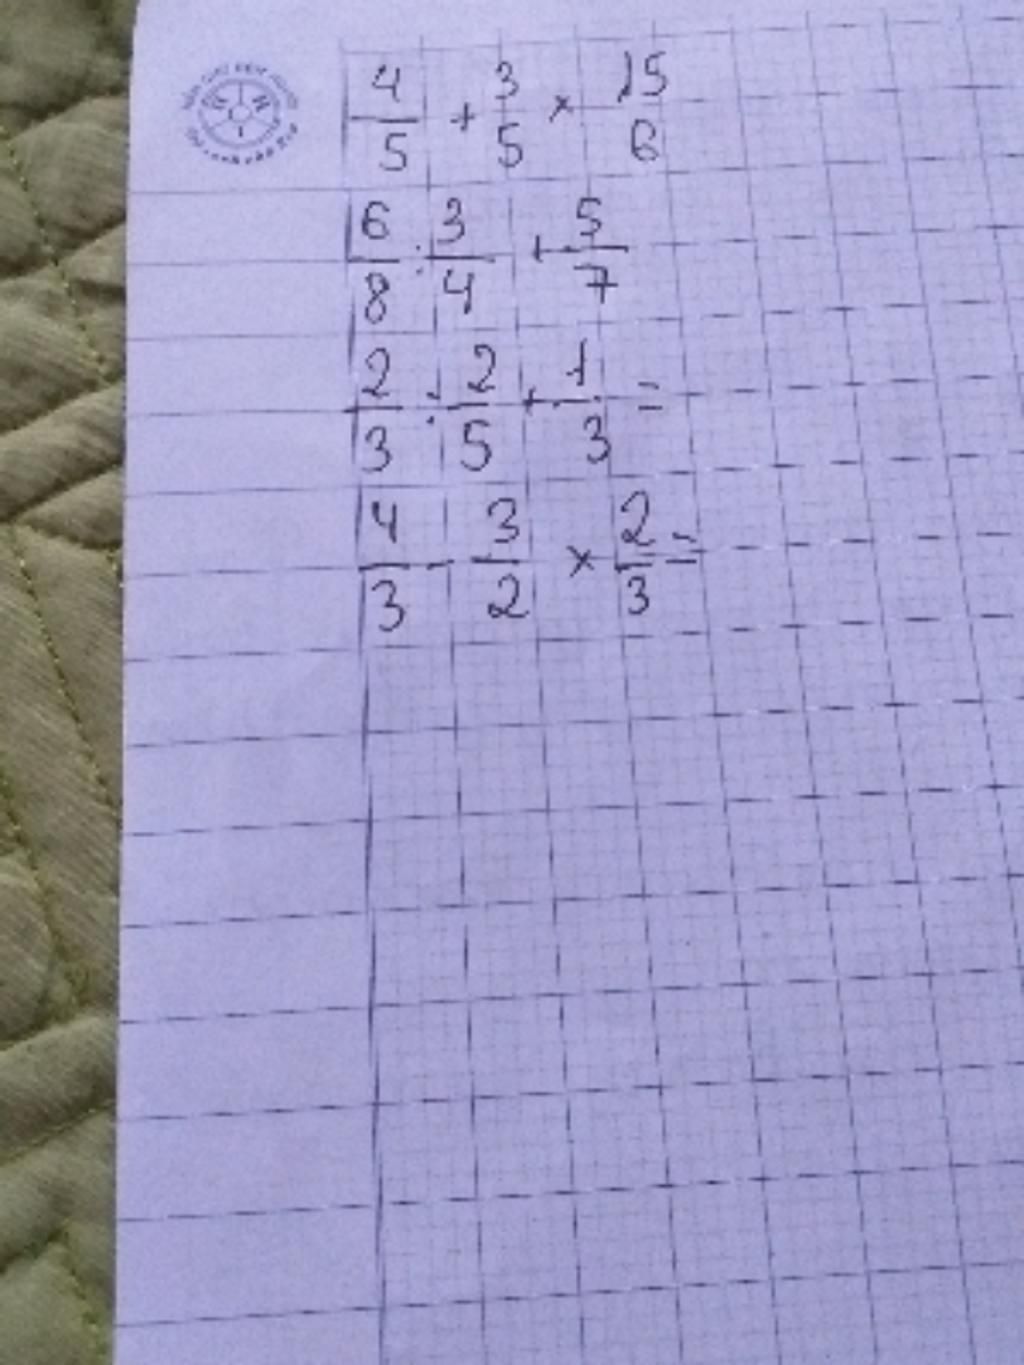 4/5 + 3/5 × 15/6
6/8 : 3/4 + 5/7
2/3 : 2/5 + 1/3 =
4/3 - 3/2 × 2/3 =